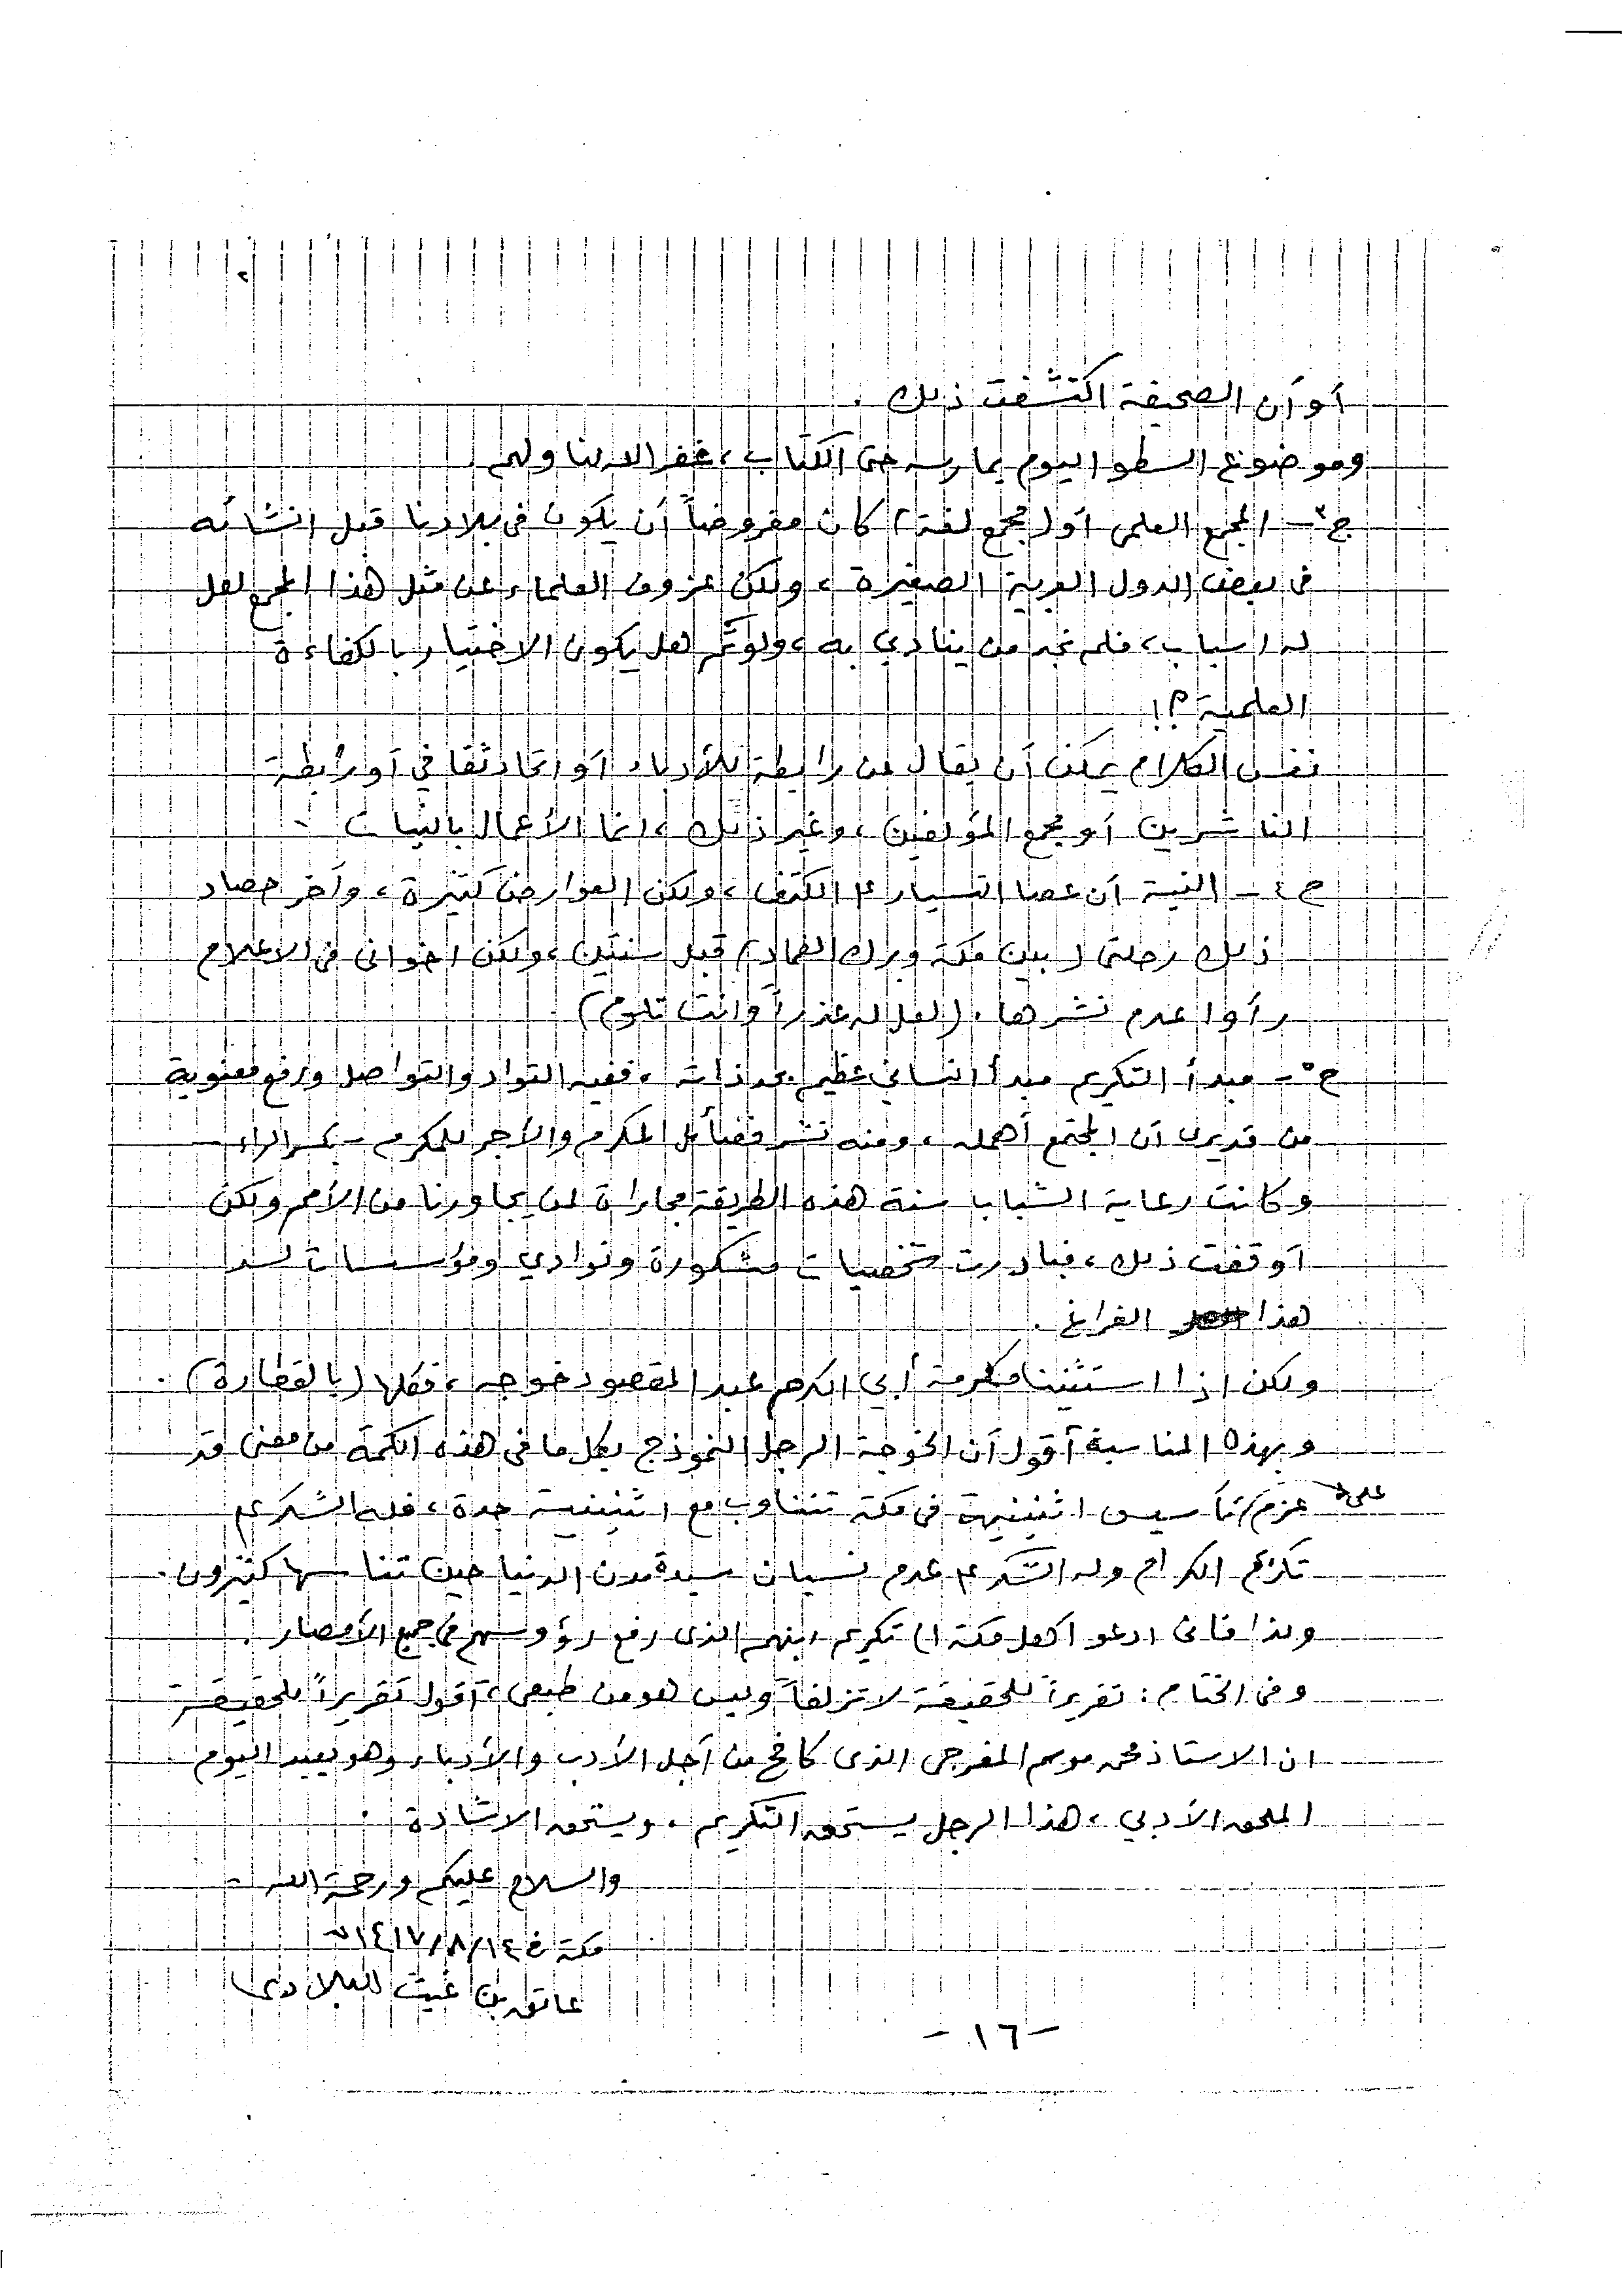 أو أن الصحيفة اكتشفت ذلك .
وموضوع السطو اليوم يمارسه حتى الكتّاب ، غفر الله لنا ولهم
ج٣ – المجمع العلمي أو ( مجمع لغة ) كان مفروضاً أن يكون في بلادنا قبل انشائه
في بعض الدول العربية الصغيرة ، ولكن عزوف العلماء عن مثل هذا المجمع لعل
له اسباب ، فلم نجد من ينادي به ، ولو تم هل يكون الاختيار بالكفاءة
العلمية ؟!
نفس الكلام يمكن أن يقال عن رابطة للأدباء أو اتحاد ثقافي أو رابطة
الناشرين أو مجمع المؤلفين ، وغير ذلك ، انما الأعمال بالنيات .
ج٤ – النية أن عصا التسيار ع الكتف ، ولكن العوارض كثيرة ، وآخر حصاد
ذلك رحلتي ( بين مكة وبرك الغماد ) قبل سنتين ، ولكن اخواني في الاعلام
رأوا عدم نشرها . ( لعل له عذراً وانت تلوم )
ج٥ – مبدأ التكريم مبدأ انساني عظيم بحد ذاته ، ففيه التواد والتواصل ورفع معنوية
من قد يرى أن المجتمع أهمله ، ومنه نشر فضائل المكرم والأجر للمكرم – بكسر الراء –
وكانت رعاية الشباب سنة هذه الطريقة مجاراة لمن يجاورنا من الأمم ولكن
أوقفت ذلك ، فبادرت شخصيات مشكورة ونوادي ومؤسسات لسد
هذا الفراغ .
ولكن اذا استثنينا مكرمة أبي الكرم عبد المقصود خوجه ، فكلها ( بالقطارة ) .
وبهذه المناسبة أقول أن الخوجة الرجل النموذج بكل ما في هذه الكلمة من معنى قد
عزم على تأسيس اثنينية في مكة تتناوب مع اثنينية جدة ، فله الشكر ع
تكريم الكرام وله الشكر ع عدم نسيان سيدة مدن الدنيا حين تناسها كثيرون .
ولذا فاني ادعو أهل مكة الى تكريم ابنهم الذي رفع رؤوسهم في جميع الأمصار .
وفي الختام : تقريراً للحقيقة لا تزلفاً وليس هو من طبعي ، أقول تقريراً للحقيقة
ان الاستاذ محمد موسم المفرجي الذي كافح من أجل الأدب والأدباء وهو يعيد اليوم
الملحق الأدبي ، هذا الرجل يستحق التكريم ، ويستحق الاشادة .
والسلام عليكم ورحمة الله .
مكة في ١٤١٧/٨/١٤هـ
عاتق بن غيث البلادي
– ١٦ –